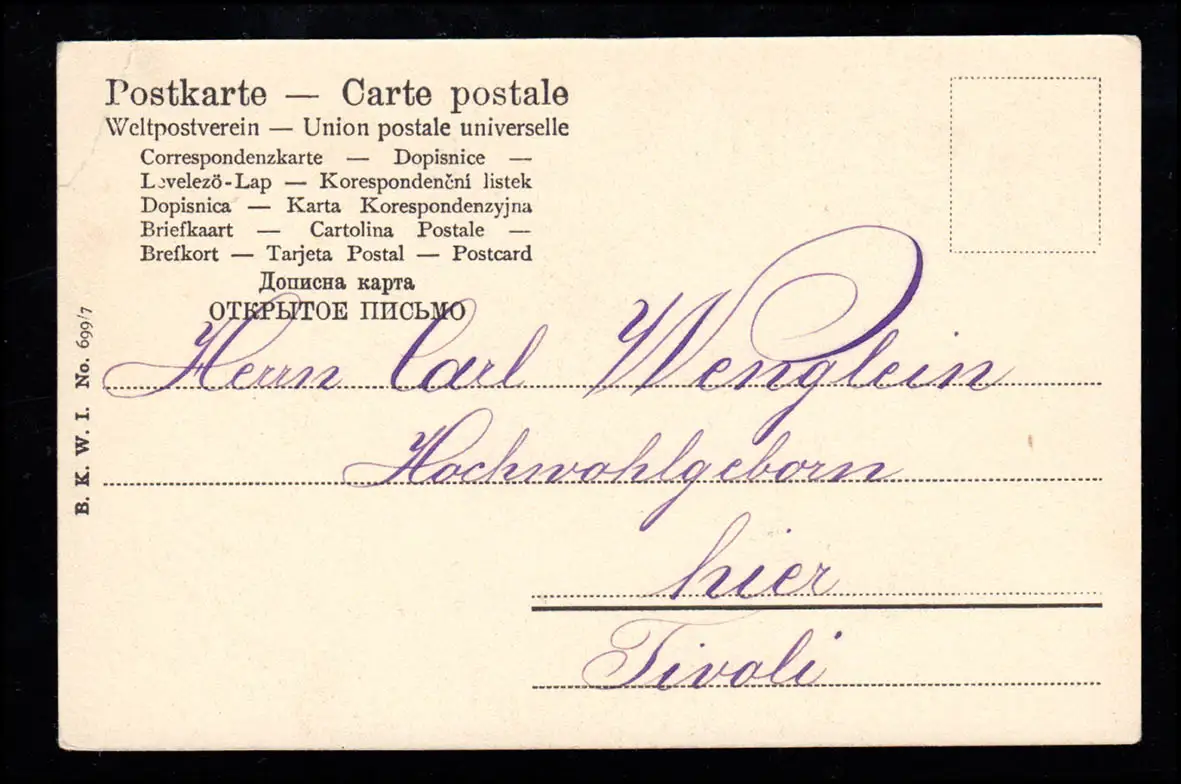 Postkarte — Carte postale
Weltpostverein — Union postale universelle
Correspondenzkarte — Dopisnice —
Levelező-Lap — Korespondenční listek
Dopisnica — Karta Korespondenzyjna
Briefkaart — Cartolina Postale —
Brefkort — Tarjeta Postal — Postcard
Дописна карта
ОТКРЫТОЕ ПИСЬМО
B. K. W. I. No. 699/7
Herrn Carl Wenglein
Hochwohlgeborn
hier
Tivoli